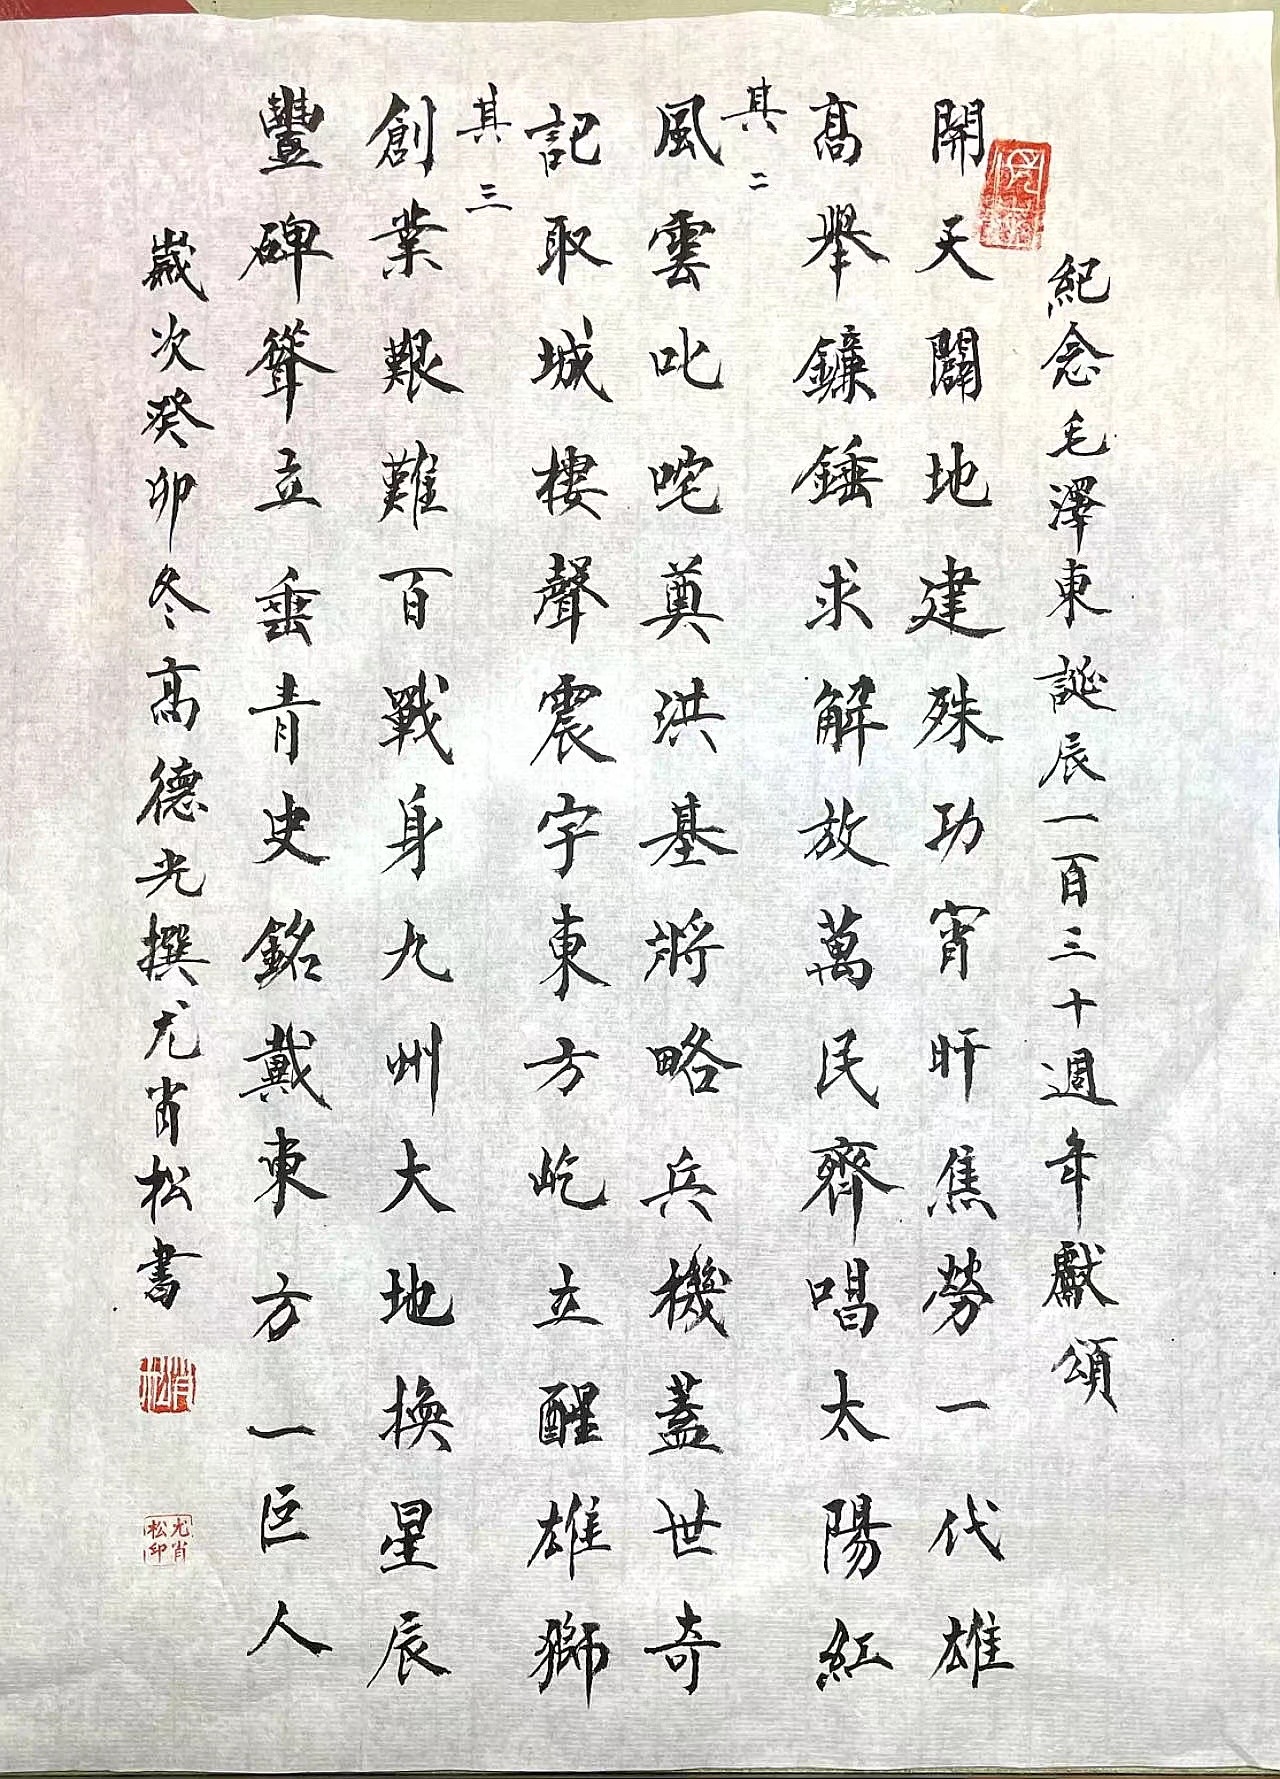 紀念毛澤東誕辰一百三十週年獻頌
開天闢地建殊功宵旰焦勞一代雄
高舉鐮錘求解放萬民齊唱太陽紅
其二
風雲叱咤奠洪基將略兵機蓋世奇
記取城樓聲震宇東方屹立醒雄獅
其三
創業艱難百戰身九州大地換星辰
豐碑聳立垂青史銘戴東方一巨人
歲次癸卯冬高德光撰尤肖松書
肖松
尤肖松印